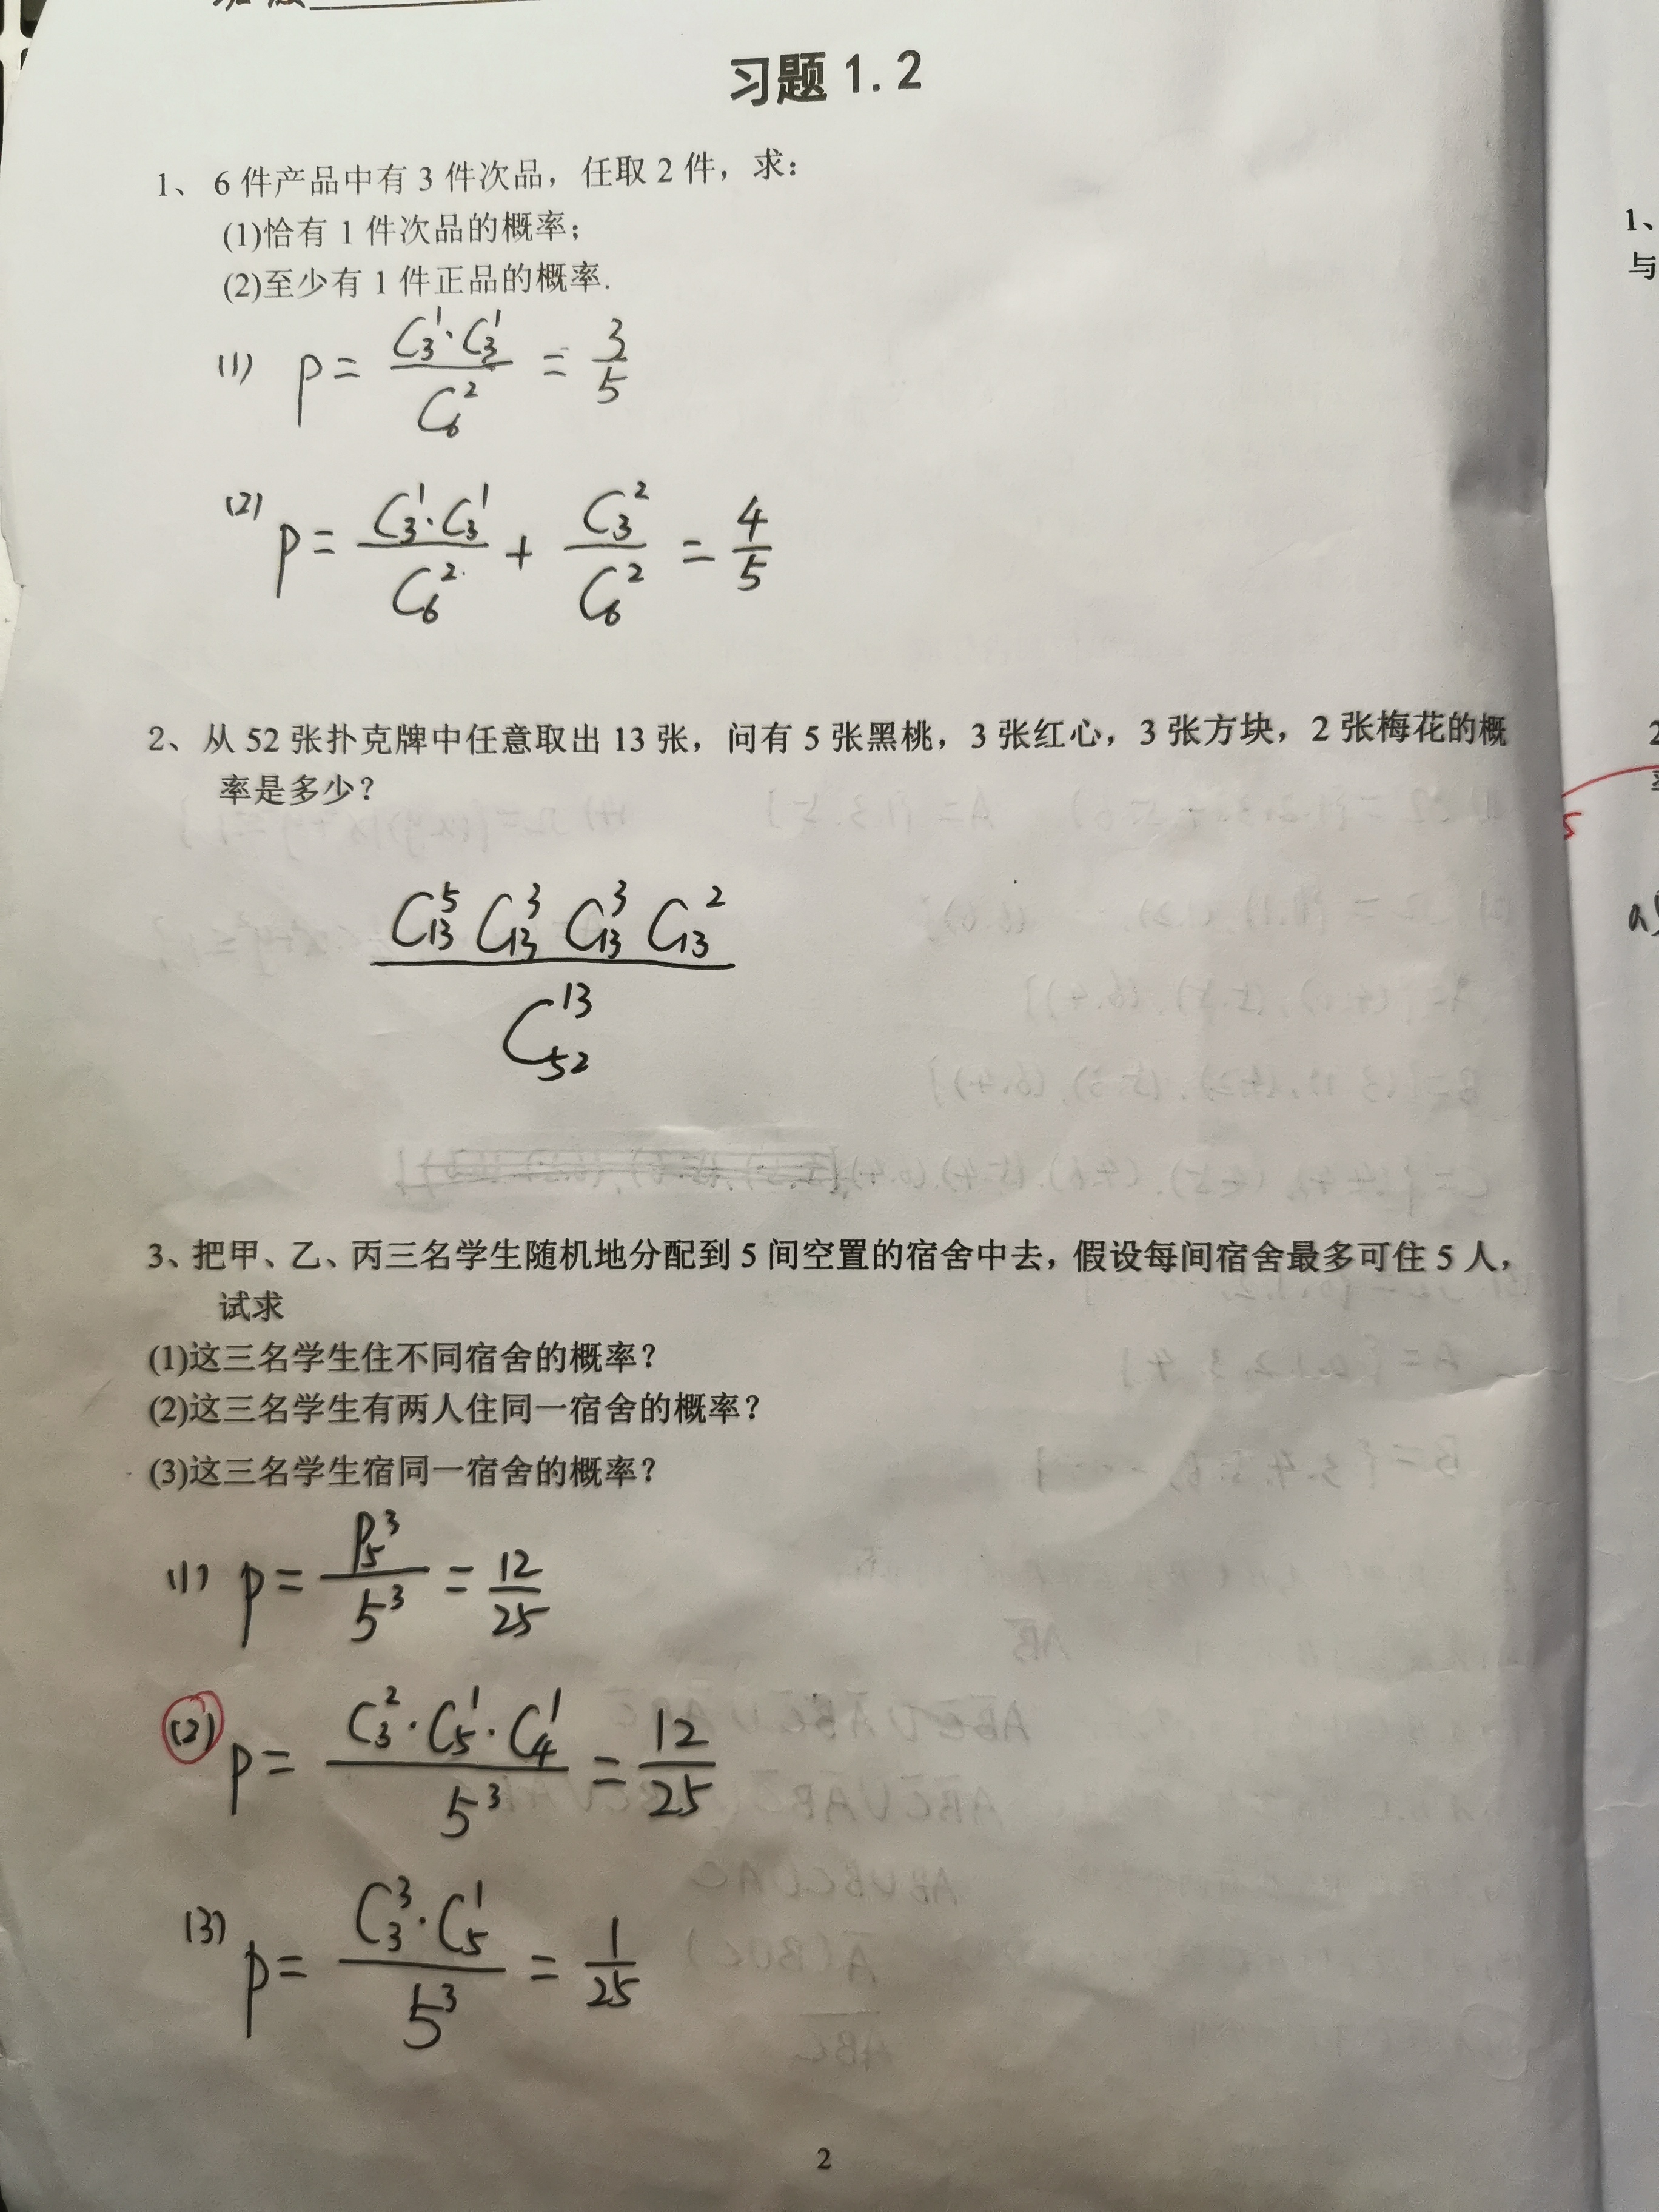 习题 1.2
1、 6 件产品中有 3 件次品，任取 2 件，求：
(1)恰有 1 件次品的概率；
(2)至少有 1 件正品的概率.
(1) P = \frac{C_3^1 \cdot C_3^1}{C_6^2} = \frac{3}{5}
(2) P = \frac{C_3^1 \cdot C_3^1}{C_6^2} + \frac{C_3^2}{C_6^2} = \frac{4}{5}
2、从 52 张扑克牌中任意取出 13 张，问有 5 张黑桃，3 张红心，3 张方块，2 张梅花的概
率是多少？
\frac{C_{13}^5 C_{13}^3 C_{13}^3 C_{13}^2}{C_{52}^{13}}
3、把甲、乙、丙三名学生随机地分配到 5 间空置的宿舍中去，假设每间宿舍最多可住 5 人，
试求
(1)这三名学生住不同宿舍的概率？
(2)这三名学生有两人住同一宿舍的概率？
(3)这三名学生宿同一宿舍的概率？
(1) P = \frac{P_5^3}{5^3} = \frac{12}{25}
(2) P = \frac{C_3^2 \cdot C_5^1 \cdot C_4^1}{5^3} = \frac{12}{25}
(3) P = \frac{C_3^3 \cdot C_5^1}{5^3} = \frac{1}{25}
2
1、
与
2